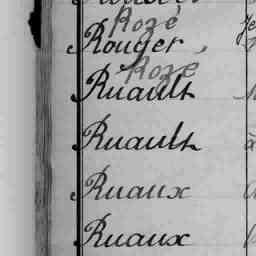 Rozé
Rouger,
Rozé
Ruault
Ruault
à
Ruaux
Ruaux